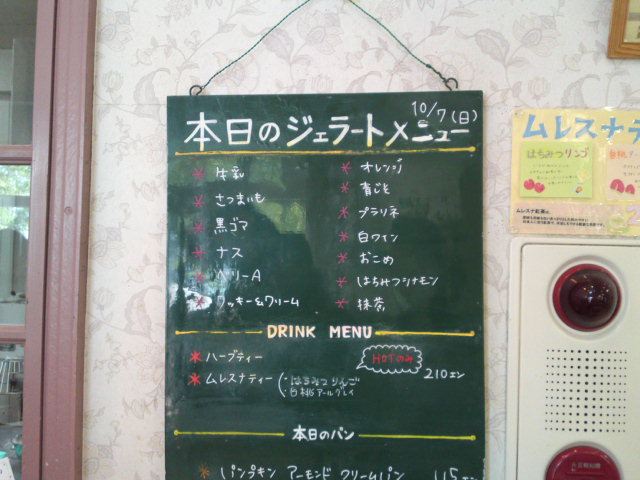 10/7(日)
本日のジェラートメニュー
* 牛乳
* さつまいも
* 黒ゴマ
* ナス
* ベリーA
* クッキー&クリーム
* オレンジ
* 青じそ
* プラリネ
* 白ワイン
* おこめ
* はちみつシナモン
* 抹茶
DRINK MENU
* ハーブティー
HOTのみ
* ムレスナティー
(・はちみつりんご
・白桃アールグレイ
210エン
本日のパン
* パンプキン アーモンド クリームパン 115エン
ムレスナテ
はちみつリンゴ
白桃アー
ムレスナ紅茶は、